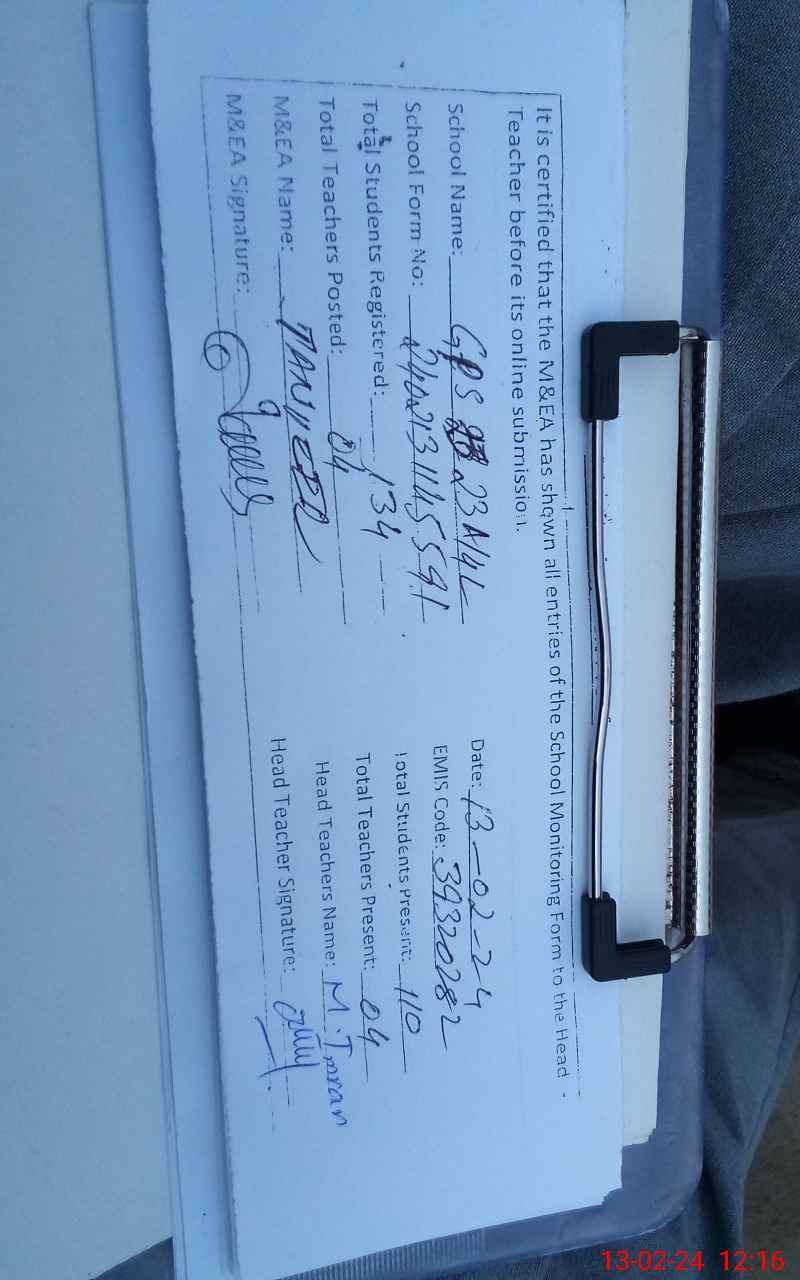 It is certified that the M&EA has shown all entries of the School Monitoring Form to the Head
Teacher before its online submission.
School Name: GPS 23 A4L Date: 13-02-24
School Form No: EMIS Code: 39320282
Total Students Registered: 134 Total Students Present: 110
Total Teachers Posted: 04 Total Teachers Present: 04
M&EA Name: TANVEER Head Teachers Name: M. Imran
M&EA Signature: Head Teacher Signature:
13-02-24 12:16